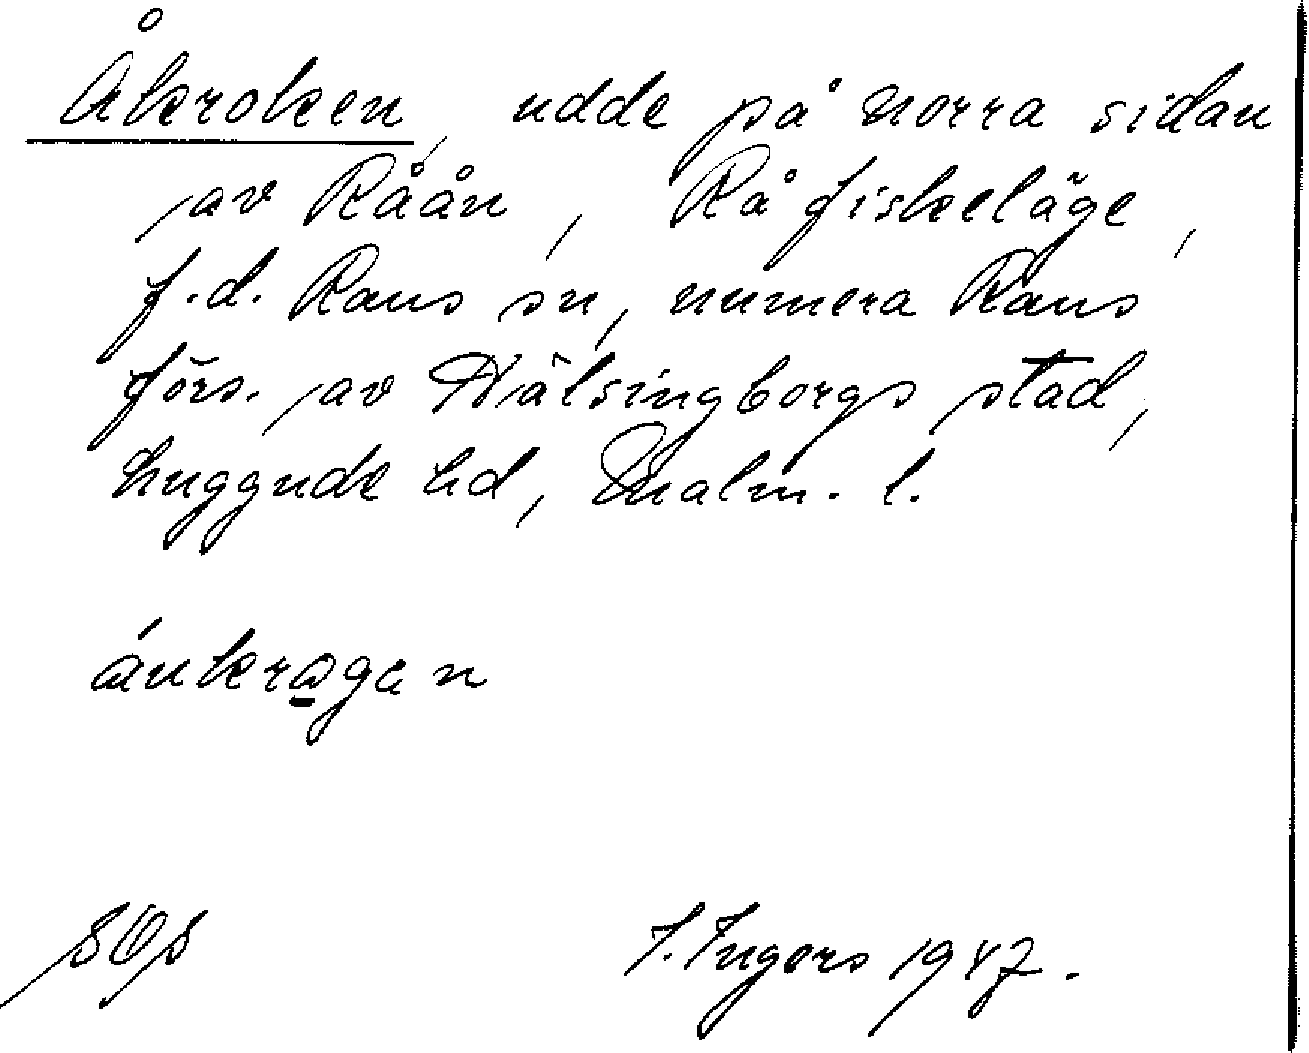 Åkroken, udde på norra sidan
av Råån, Rå fiskeläge,
f.d. Raus sn, numera Raus
förs. av Hälsingborgs stad,
Luggude hd, Malm. l.
ánkrǫgen
SOS
I. Ingers 1947.